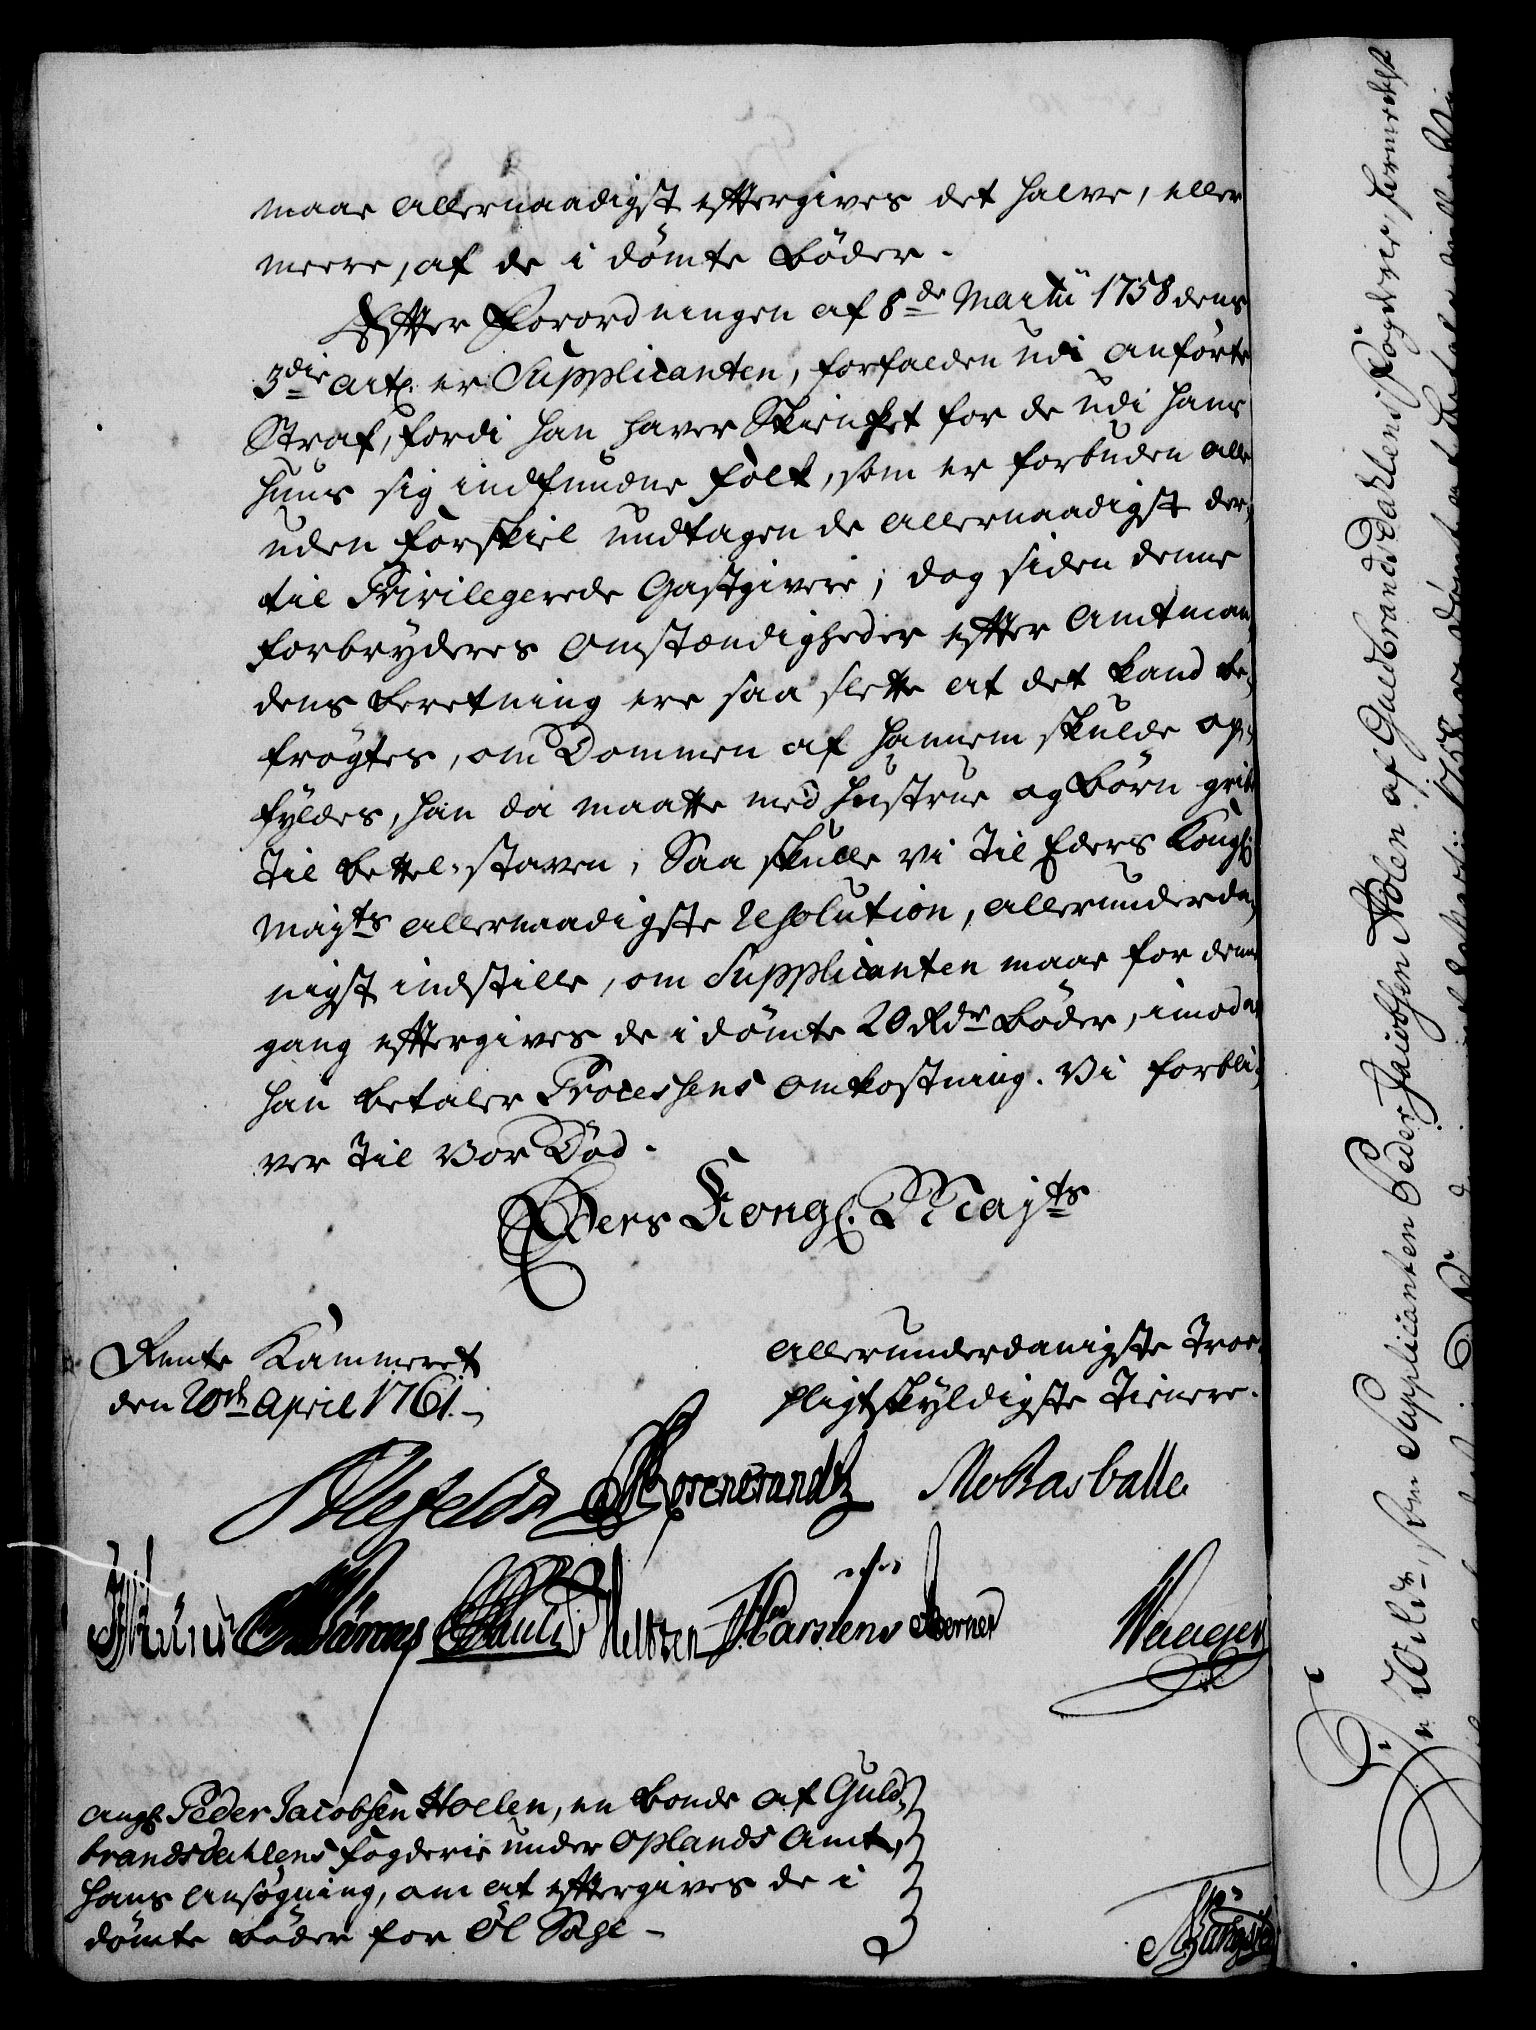 maae allernaadigst eftergives det halve, eller
meere, af de i dömte Böder.
Efter Forordningen af 8de Martii 1758 dens
3die Artl: er Supplicanten, forfalden udi anförte
Straf, fordi han haver Skienket for de udi hans
Huus sig indfundne Folk, som er forbuden alle
uden Forskiel undtagen de allernaadigst der,
til Privilegerede Gastgivere; dog siden denne
forbryderes Omstændigheder efter Amtman,
dens beretning ere saa slette at det kand be,
frögtes, om Dommen af hannem skulde op,
fyldes, han da maatte med Hustrue og Börn gribe
til bettel-staven; Saa skulle vi til Eders Kongl:
Mayts allernaadigste Resolution, allerunderda,
nigst indstille, om Supplicanten maae for denne
gang eftergives de i dömte 20 Rdr Böder, imod at
han betaler Processens Omkostning. Vi forbli,
ver til vor Död.
Eders Kongl. Mayts
allerunderdanigste Troe,
pligtskyldigste Tienere.
Rente Kammeret
den 20de April 1761.
Ahlefeldt
Holtzen Karstens Berner
Waager
angl. Peder Jacobsen Hoelen, en Bonde af Guld,
brandsdahlens Fogderie under Oplands Amt,
hans Ansögning, om at eftergives de i
dömte Böder for Öl Sage
som Supplicanten Peder Jacobsen Holen af Guldbrandsdahlens Fogderie, formedelst